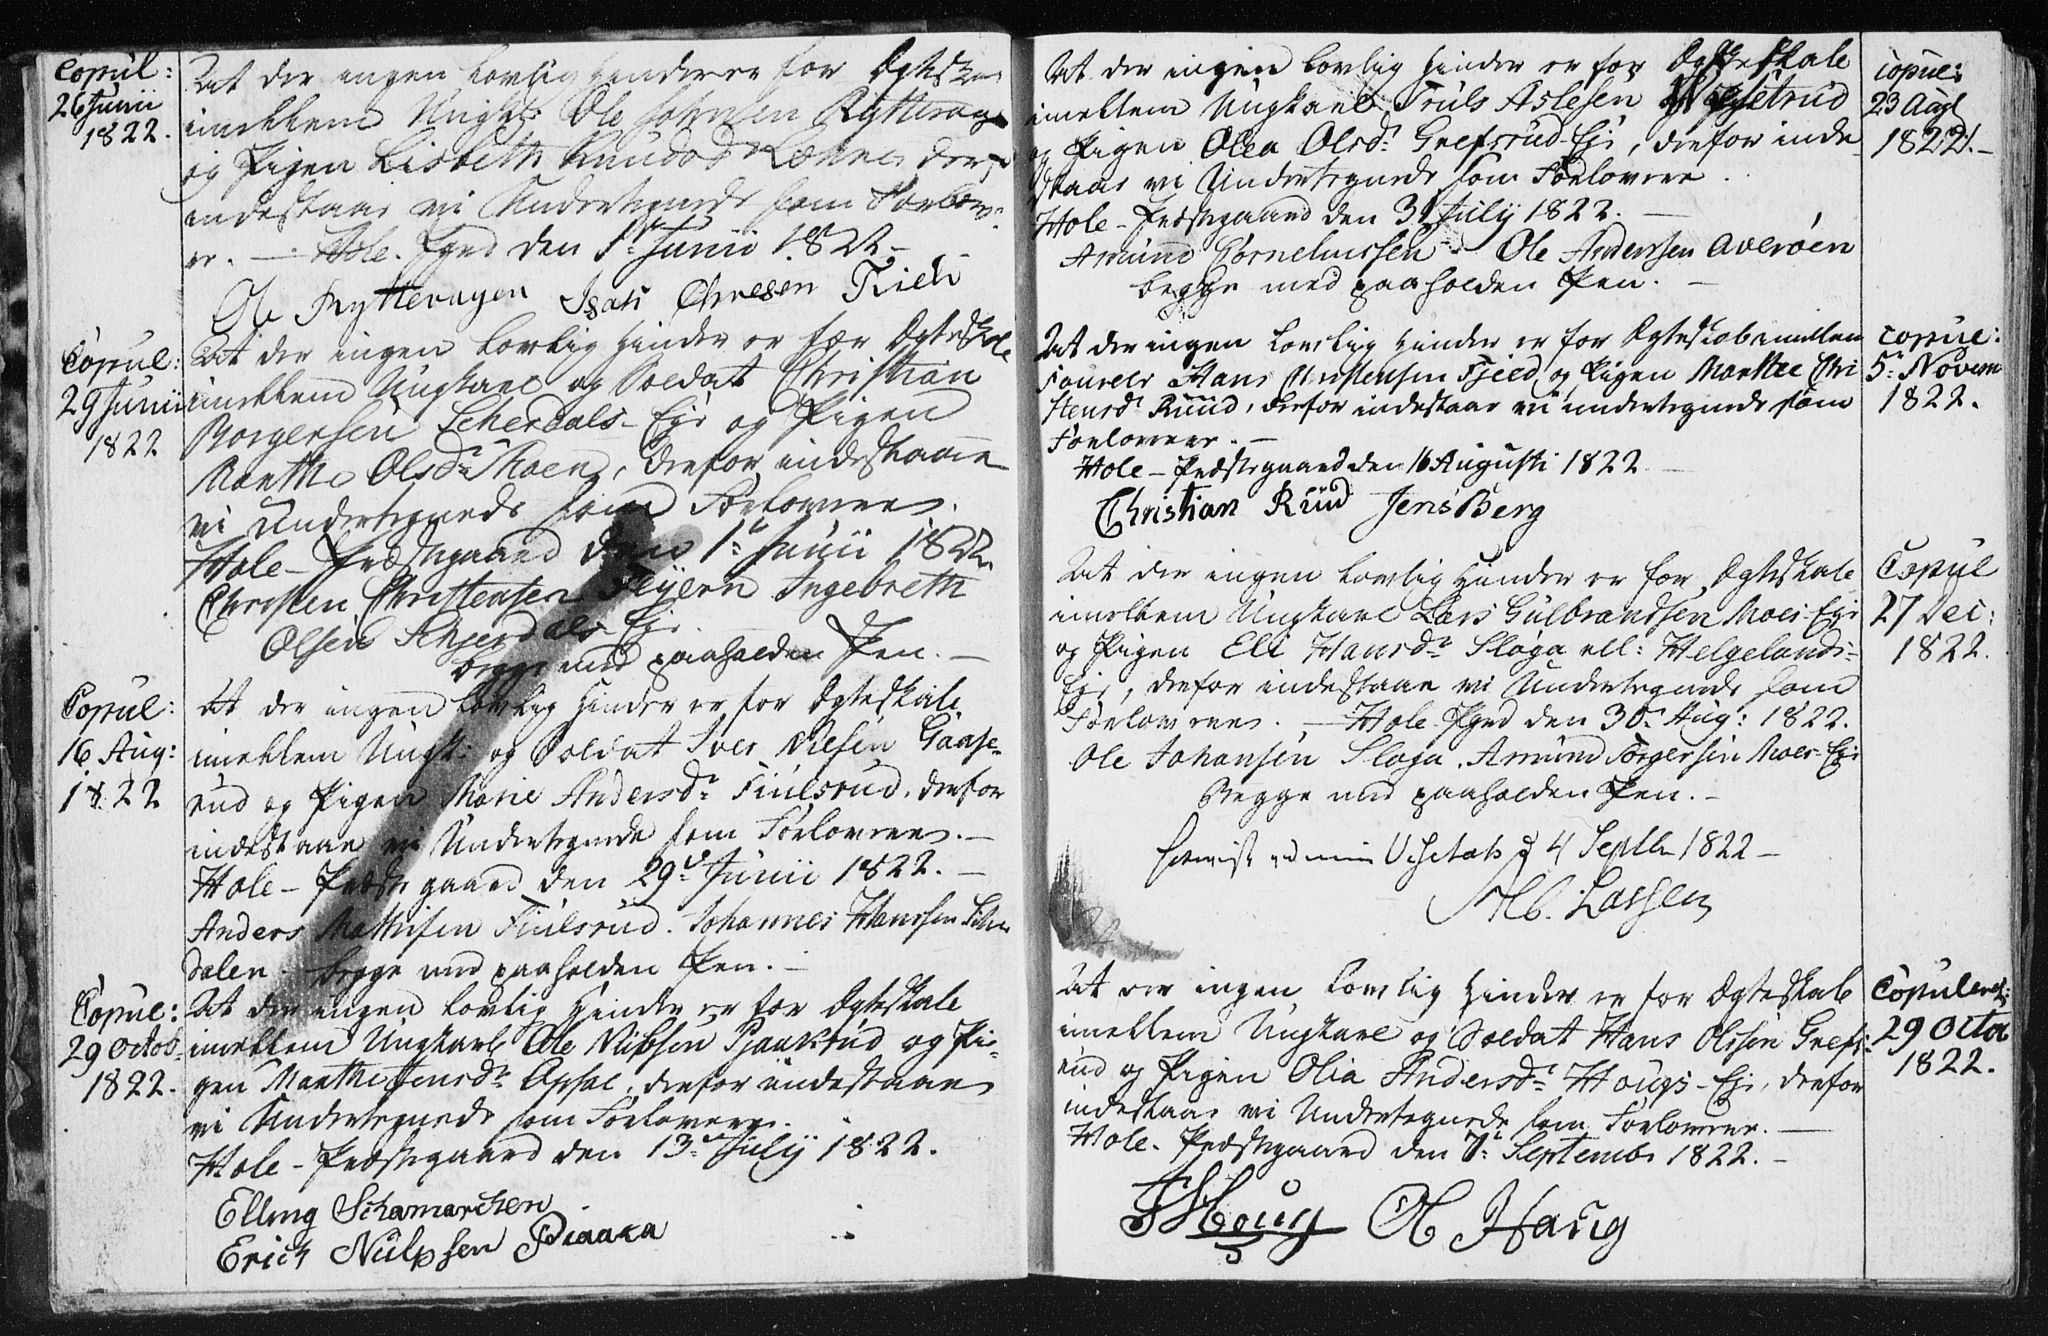 Copul:
26 Junii
1822.
At der ingen lovlig Hinder er for Ægteska
imellem Ungk: Ole Johnsen Rytterag
og Pigen Lisbeth Knudsd
indestaar vi Undertegnede som Forlov-
er. — Hole. Pgrd den 1te Junii 1822 –
Ole Rytteragen Isak Chresen
Copul:
29 Junii
1822
At der ingen lovlig Hinder er for Ægteskab
imellem Ungkarl og Soldat Christian
Borgersen Scherdals-Eje og Pigen
Marthe Olsdr Moen, derfor indestaaer
vi Undertegnede som Forlovere.
Hole – Præstegaard den 1te Junii 1822
Christen Christensen Ingebreth
Olsen Scherdals-Eje
begge med paaholden Pen. –
Copul:
16 Aug:
1822
At der ingen lovlig Hinder er for Ægteskab
imellem Ungk: og Soldat Iver Gaase-
rud og Pigen Marie Andersdr Fiulsrud, derfor
indestaar vi Undertegnede som Forlovere. –
Hole – Præstegaard den 29de Junii 1822. –
Anders Mathisen Fiulsrud. Johannes Hansen
dalen. begge med paaholden Pen. –
Copul:
29 Octob
1822.
At der ingen lovlig Hinder er for Ægteskab
imellem Ungkarl Ole Nilssen Pjaakrud og Pi-
gen Marthe Jensdr derfor indestaaer
vi Undertegnede som Forlovere.
Hole – Præstegaard den 13de July 1822.
Elling Schamarchen
Erich Nielssen Piaaka
At der ingen lovlig Hinder er for Ægteskab
imellem Ungkarl Truls Aslesen
og Pigen Olea Olsdr Grefsrud-Eje, derfor inde-
staar vi Undertegnede som Forlovere.
Hole – Præstegaard den 31 July 1822. –
Amund Corneliussen – Ole Andersen Averøen
begge med paaholden Pen. –
copul:
23 Augt
1822. –
At der ingen lovlig Hinder er for Ægteskab imellem
Hans Christensen Fjeld og Pigen Marthe Chri
stensdr Ruud, derfor indestaar vi undertegnede som
Forlovere. –
Hole – Præstegaard den 16 Augusti 1822
Christian Ruud Jens Berg
copul:
5te Novem
1822.
At der ingen lovlig Hinder er for Ægteskab
imellem Ungkarl Lars Gulbrandsen Moes-Eje
og Pigen Eli Hansdr Sløga ell: Helgelands-
Eje, derfor indestaar vi Undertegnede som
Forlovere. – Hole Pgrd den 30te Aug: 1822.
Ole Johansen Sløga. Amund Torgersen Moes-Eje
Begge med paaholden Pen. –
Copul
27 Dec:
1822.
ved min Visitats d 4 Septbr 1822 –
Lassen
At der ingen lovlig Hinder er for Ægteskab
imellem Ungkarl og Soldat Hans Olssen Grefs-
rud og Pigen Olia Andersdr Hougs-Eje, derfor
indestaar vi Undertegnede som Forlovere. –
Hole. Præstegaard den 7de Septembr 1822. –
Houg O Haug
Copuleret:
29 Octo
1822.